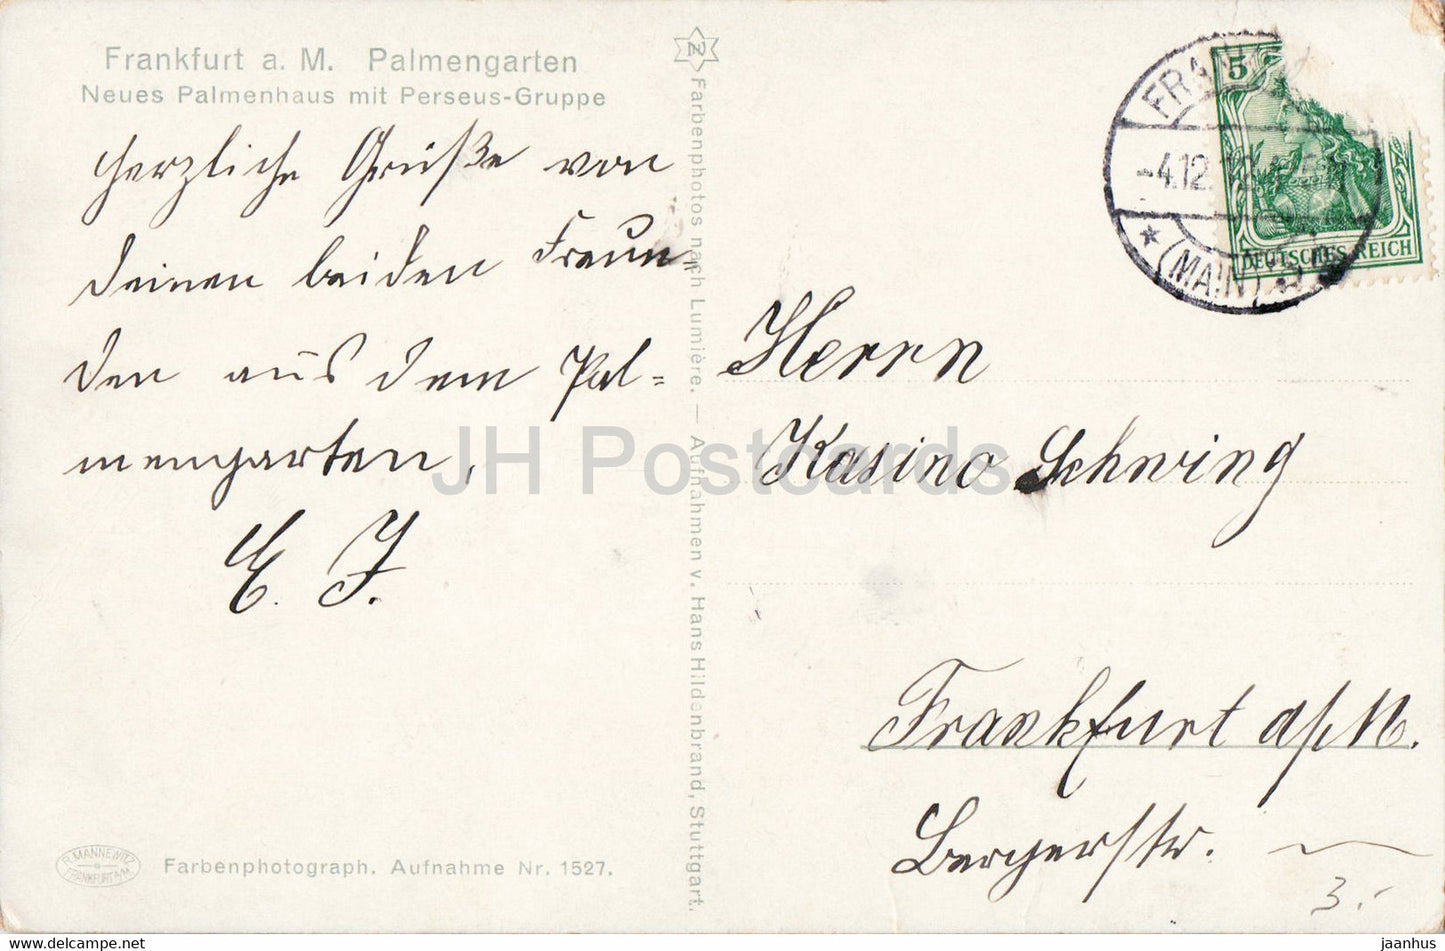 Frankfurt a. M. Palmengarten
Neues Palmenhaus mit Perseus-Gruppe
Herzliche Grüße von
deinen beiden Freun=
den aus dem Pal=
mengarten,
E. F.
R. MANNEWITZ
FRANKFURT A/M.
Farbenphotograph. Aufnahme Nr. 1527.
Farbenphotos nach Lumière. — Aufnahmen v. Hans Hildenbrand, Stuttgart.
5
DEUTSCHES REICH
-4.12.
(MAIN)
Herrn
Kasino Schwing
Frankfurt a/M.
Bergerstr.
3.-
JH Postcards
jaanhus
www.delcampe.net